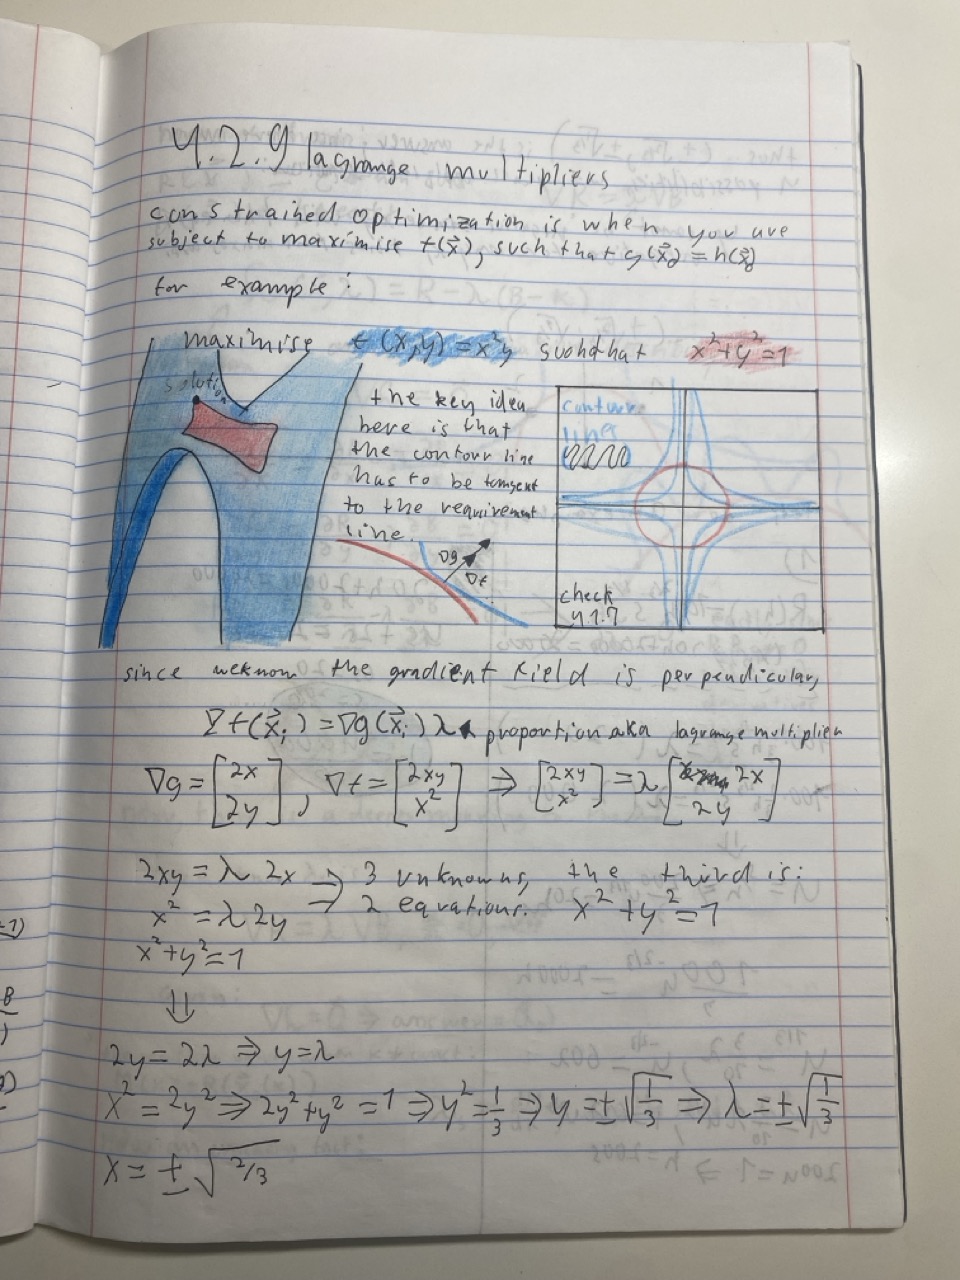 4.2.9 lagrange multipliers
constrained optimization is when you are
subject to maximise f(x⃗), such that g(x⃗) = h(x⃗)
for example:
maximise f(x,y) = x²y suchthat x²+y²=1
solution
the key idea
here is that
the contour line
has to be tangent
to the requirement
line.
∇g
∇f
contour
line
check
41.7
since weknow the gradient field is perpendicular,
∇f(x⃗ᵢ) = ∇g(x⃗ᵢ) λ ← proportion aka lagrange multiplier
∇g = [2x 2y], ∇f = [2xy x²] ⇒ [2xy x²] = λ [2x 2y]
2xy = λ 2x ⇒ 3 unknowns, the third is:
x² = λ 2y ⇒ 2 equations. x² + y² = 1
x²+y²=1
⇓
2y = 2λ ⇒ y=λ
x² = 2y² ⇒ 2y²+y² = 1 ⇒ y² = 1/3 ⇒ y = ±√(1/3) ⇒ λ = ±√(1/3)
x = ±√(2/3)